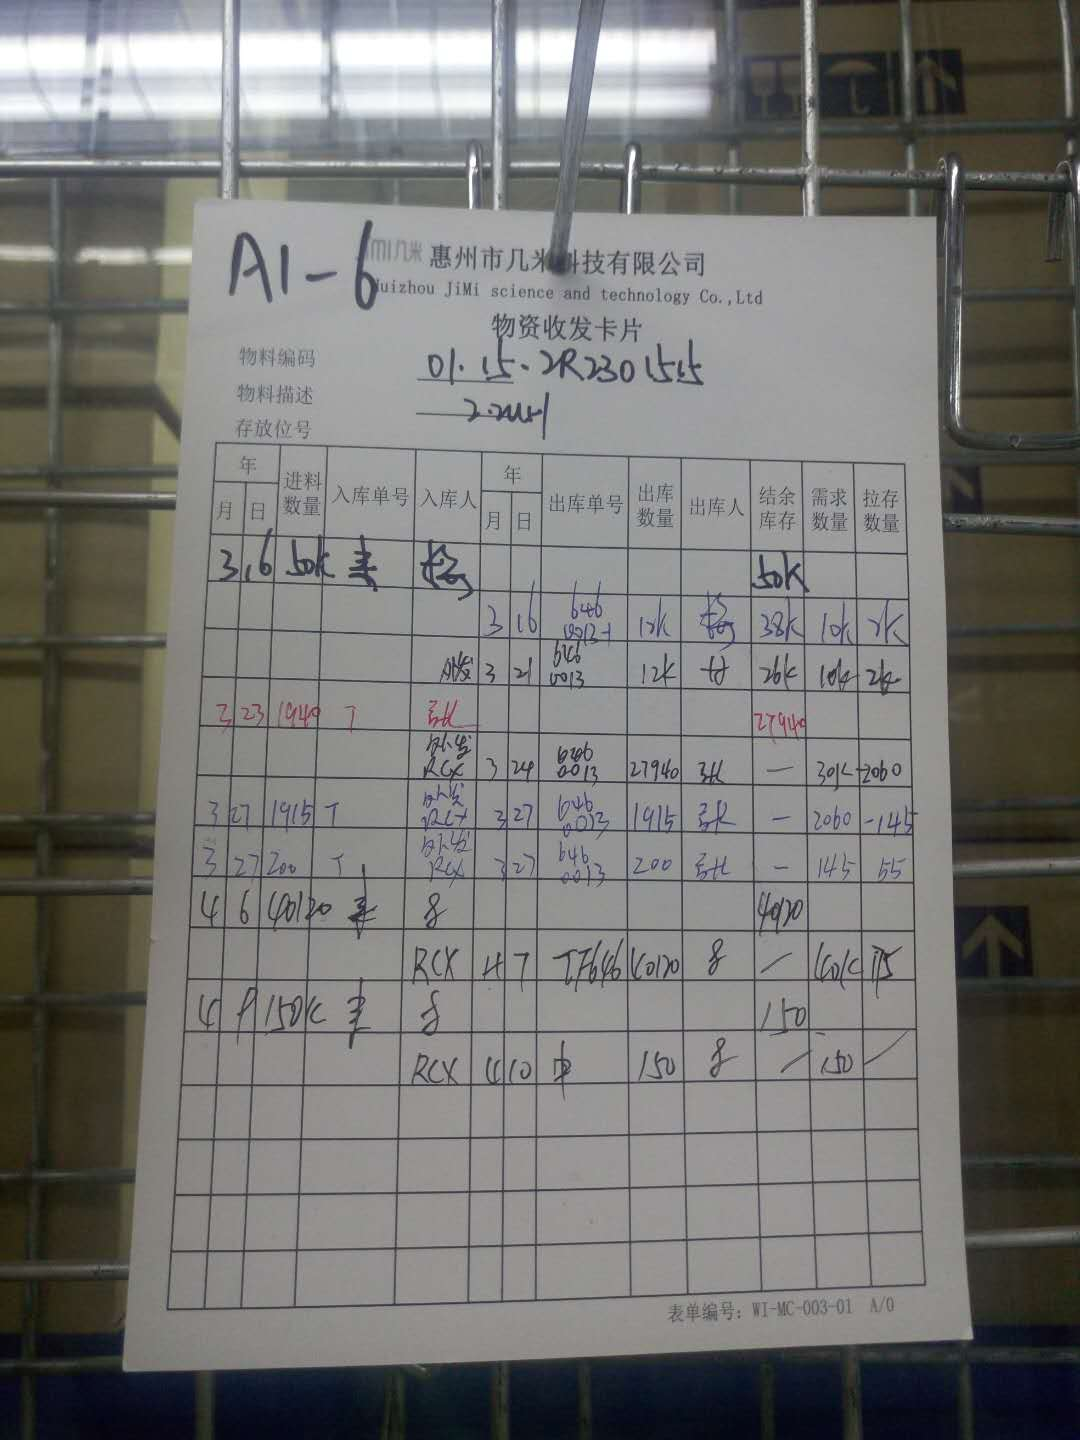 A1-6
几米 惠州市几米科技有限公司
Huizhou JiMi science and technology Co.,Ltd
物资收发卡片
物料编码 01.15.2R2301515
物料描述
存放位号
年 进料数量 入库单号 入库人 年 出库单号 出库数量 出库人 结余库存 需求数量 拉存数量
月 日 月 日
3 16 50K 50K
3 16 646 0013-1 12K 38K 10K 2K
外发 3 21 646 0013 12K 26K 10K 2K
3 23 1940 T 27940
外发 RCX 3 24 646 0013 27940 — 30K -2060
3 27 1915 T 外发 RCX 3 27 646 0013 1915 — 2060 -145
3 27 200 T 外发 RCX 3 27 646 0013 200 — 145 55
4 6 40120 40120
RCX 4 7 TF646 40120 — 40K 175
4 9 150K 150
RCX 4 10 150 150
表单编号: WI-MC-003-01 A/0